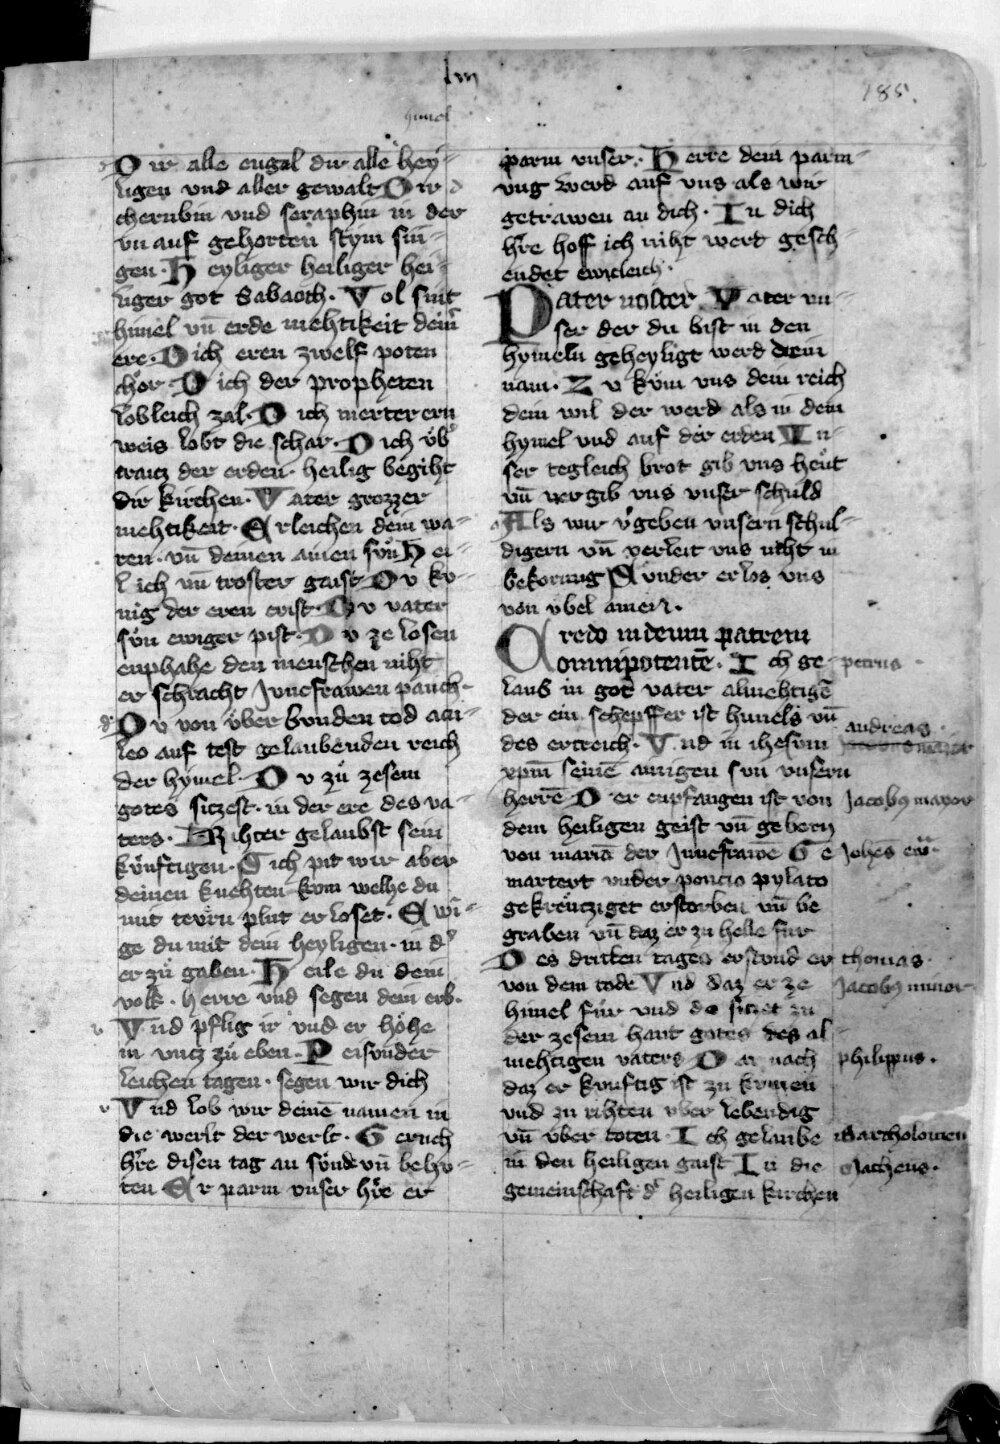 lm
185.
himel
Dir alle engal dir alle hey-
ligen vnd aller gewalt Dir
cherubin vnd seraphin in der
vn auf gehorten stym sin-
gen. Heyliger heiliger hei-
liger got Sabaoth. Vol sint
himel vn̄ erde mehtikeit dein͛
ere. Dich eren zwelf poten
chör. Dich der propheten
lobleich zal. Dich merter ern
weis lobt die schar. Dich vb͛
trantz der erden. heilig begiht
dir kirchen. Vater grozzer
mehtikeit. Erleichen dein wa-
ren. vn̄ deinen ainen svn Hei-
lich vn̄ troster gaist Dv kv-
nig der eren crist. Dv vater
svn ewiger pist. Dv ze losen
enphahe den menschen niht
er schracht Juncfrawen pauch.
Dv von vber bunden tod acu-
leo auf test gelaubenden reich
der hymel. Dv zů zesem
gotes sitzest. in der ere des va-
ters. Rihter gelaubst sein
kvnftigen. Dich pit wir aber
deinen knehten kvm welhe du
mit tevrn plut erloset. Ewi-
ge du mit dein heyligen. in d͛
er zů gaben. Heile du dein
volk. herre vnd segen dein erb.
Vnd pflig ir vnd er höhe
in vntz zů eben. Peisvnder
leichen tagen. segen wir dich
Vnd lob wir deinē namen in
die werlt der werlt. Geruch
hr̄e disen tag an svnde vn̄ behv-
ten Er parm vnser hr̄e er
parm vnser. Herre dein parm-
vng werd auf vns als wir
getrawen an dich. In dich
hr̄e hoff ich niht werd gesch-
endet ewicleich.
Pater noster Vater vn-
ser der du bist in den
hymeln geheyligt werd dein
nam. Zv kvm vns dein reich
dein wil der werd als in dem
hymel vnd auf der erden Vn-
ser tegleich brot gib vns hevt
vn̄ vergib vns vnser schuld
Als wir v͛geben vnsern schul-
digern vn̄ verleit vns niht in
bekorung Sunder erlos vns
von vbel amen.
Credo in deum patrem
omnipotentē. Ich ge- petrus
laub in got vater almehtigē
der ein schepffer ist himels vn̄
andreas
des ertreich. Vnd in ihesum
xpm̄ seinē ainigen svn vnsern
herrē Der enpfangen ist von Jacobꝰ mayor
dem heiligen geist vn̄ gebern
von mariā der Juncfrawē Ge Joh̄es
martert vnder poncio pylato
gekrevtziget erstorben vn̄ be
graben vn̄ daz er zu helle fur
Des dritten tages erstvnd er thomas.
von dem tode Vnd daz er ze Jacobꝰ minor
himel fur vnd do sitzet zu
der zesem hant gotes des al
mehtigen vaters Dar nach philippus.
daz er kvnftig ist zu kvmen
vnd zu rihten vber lebendig
vn̄ vber toten. Ich gelaube Bartholomeu
in den heiligen gaist In die Matheus.
gemeinschaft d͛ heiligen kirchen